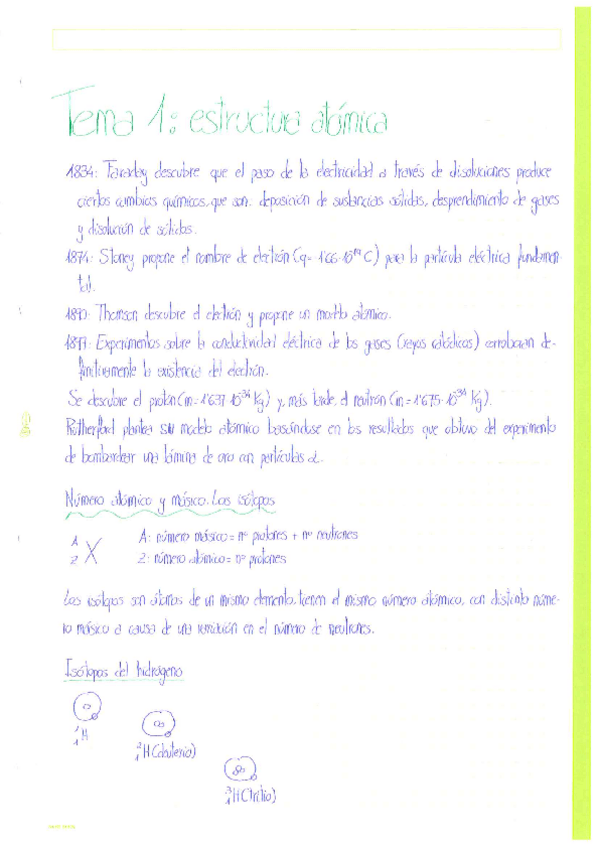 Tema 1: estructura atómica
1834: Faraday descubre que el paso de la electricidad a través de disoluciones produce
ciertos cambios químicos, que son: deposición de sustancias sólidas, desprendimiento de gases
y disolución de sólidos.
1874: Stoney propone el nombre de electrón (q = 1'66·10 C) para la partícula eléctrica fundamen-
tal.
Thomson descubre el electrón y propone un modelo atómico.
Experimentos sobre la conductividad eléctrica de los gases (rayos catódicos) corroboran de-
finitivamente la existencia del electrón.
Se descubre el protón (m = 1'637·10 Kg) y, más tarde, el neutrón (m = 1'675·10 Kg).
Rutherford plantea su modelo atómico basándose en los resultados que obtuvo del experimento
de bombardear una lámina de oro con partículas α.
Número atómico y másico. Los isótopos
A Z X
A: número másico = nº protones + nº neutrones
Z: número atómico = nº protones
Los isótopos son átomos de un mismo elemento, tienen el mismo número atómico, con distinto núme-
ro másico a causa de una variación en el número de neutrones.
Isótopos del hidrógeno
1 1 H
2 1 H (deuterio)
3 1 H (tritio)